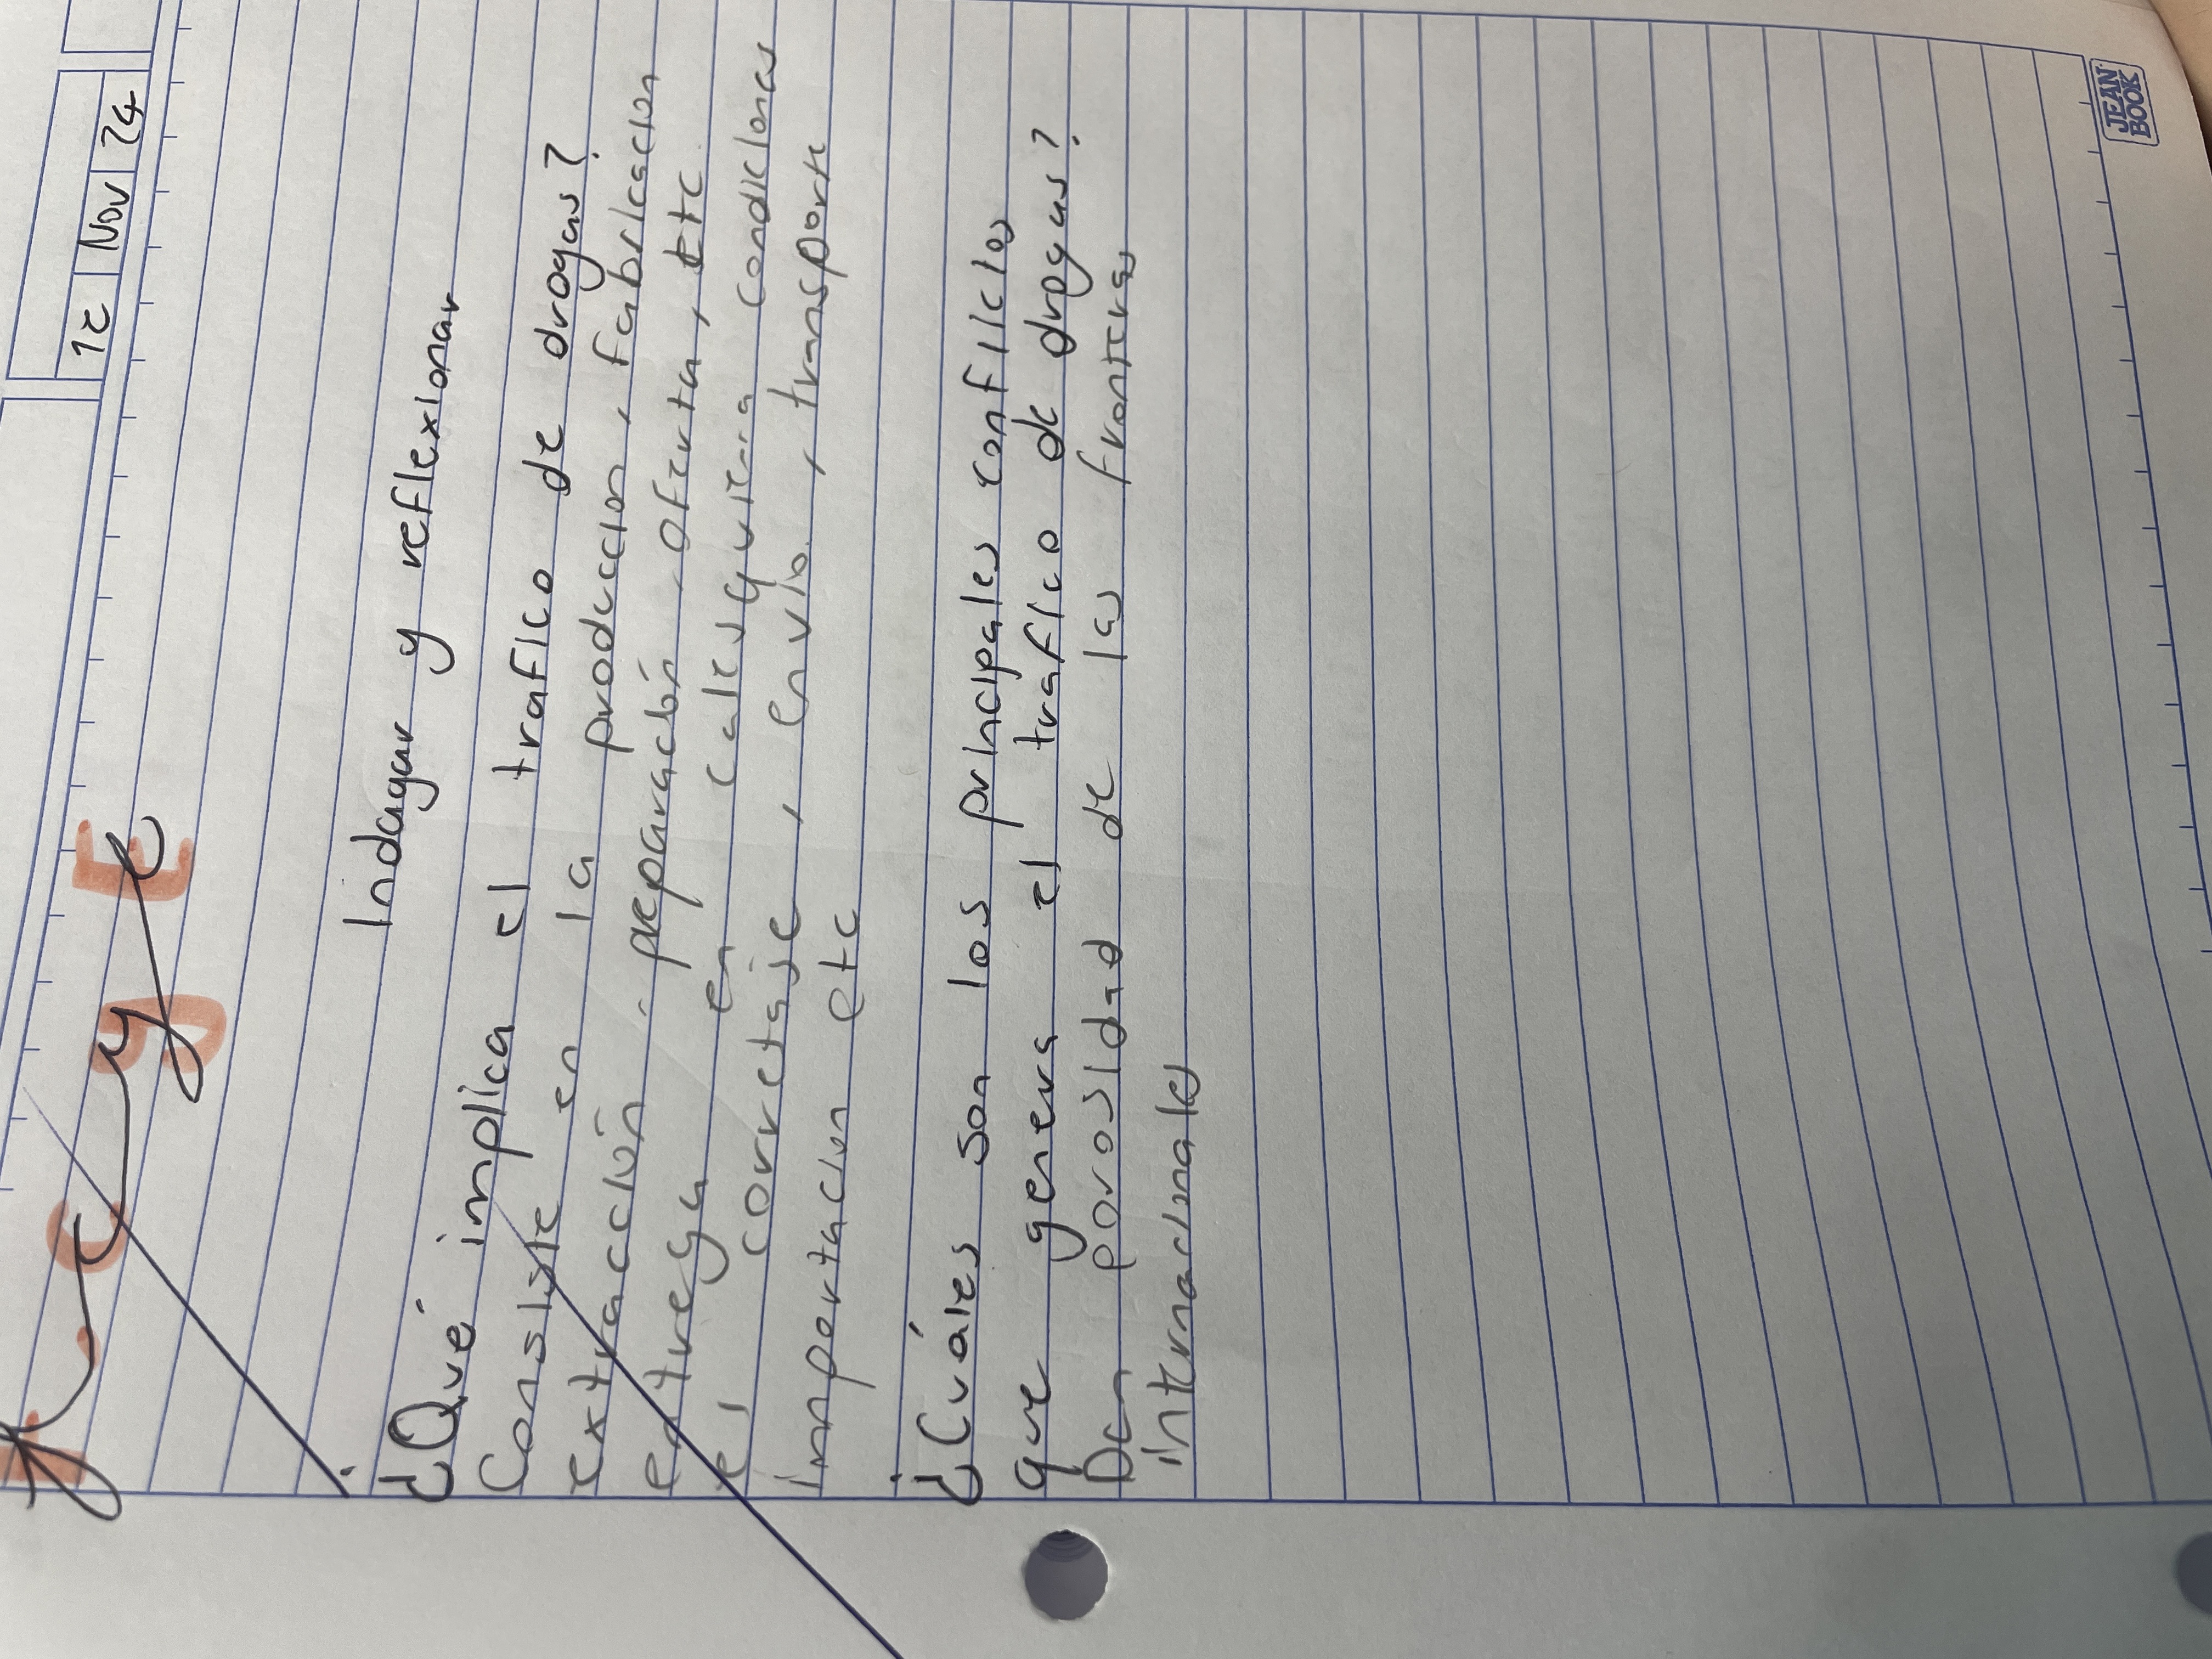 12 Nov 24
F. C y E
Indagar y reflexionar
¿Qué implica el trafico de drogas?
Consiste en la producción, fabricacion
extracción, preparación, oferta, etc
entrega en calesquiera condiciones
el corretaje, envío, transporte
importacion etc
¿Cuáles son los principales conflictos
que genera el trafico de drogas?
Dan porosidad de las fronteras
internacionales
JEAN
BOOK